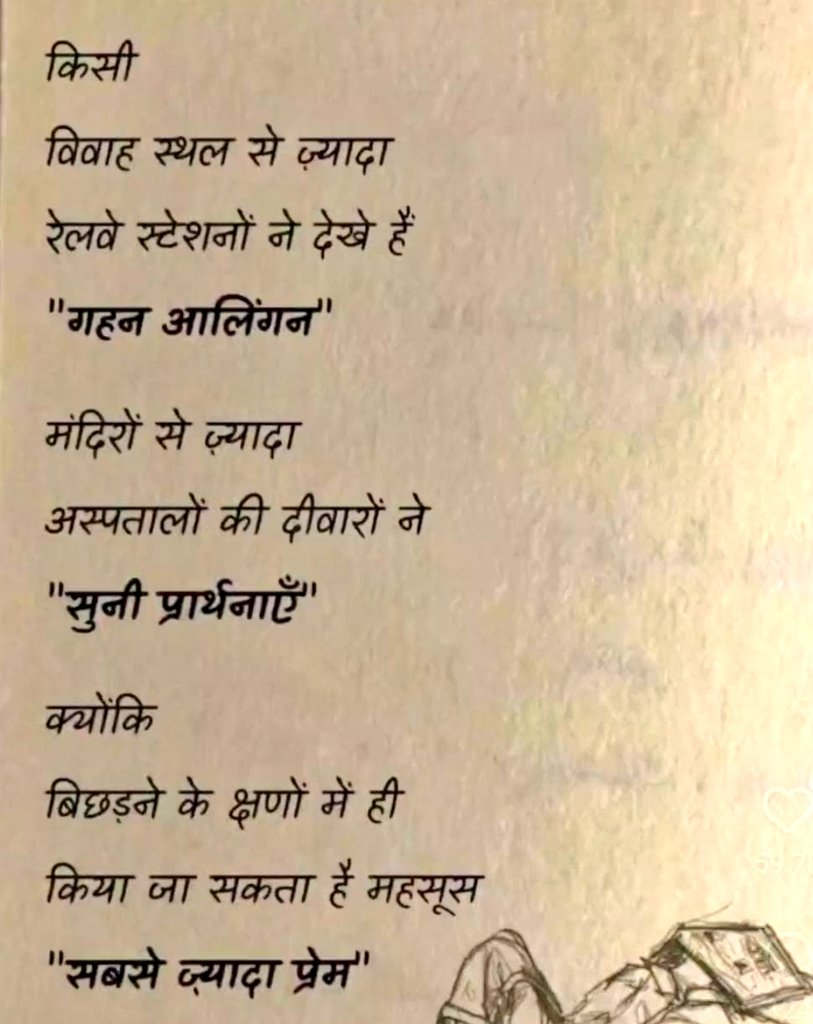 किसी
विवाह स्थल से ज़्यादा
रेलवे स्टेशनों ने देखे हैं
"गहन आलिंगन"
मंदिरों से ज़्यादा
अस्पतालों की दीवारों ने
"सुनी प्रार्थनाएँ"
क्योंकि
बिछड़ने के क्षणों में ही
किया जा सकता है महसूस
"सबसे ज़्यादा प्रेम"